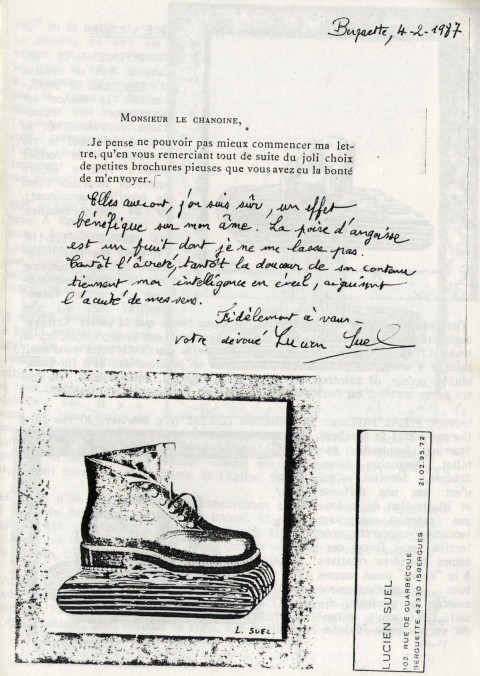 Berguette, 4-2-1987
MONSIEUR LE CHANOINE,
Je pense ne pouvoir pas mieux commencer ma let-
tre, qu'en vous remerciant tout de suite du joli choix
de petites brochures pieuses que vous avez eu la bonté
de m'envoyer.
Elles auront, j'en suis sûr, un effet
bénéfique sur mon âme. La poire d'angoisse
est un fruit dont je ne me lasse pas.
Tantôt l'âcreté, tantôt la douceur de son contenu
tiennent mon intelligence en éveil, aiguisent
l'acuité de mes sens.
Fidèlement à vous —
votre dévoué Lucien Suel
L. SUEL.
LUCIEN SUEL
102, RUE DE GUARBECQUE
BERGUETTE 62330 ISBERGUES
21 02.95.72